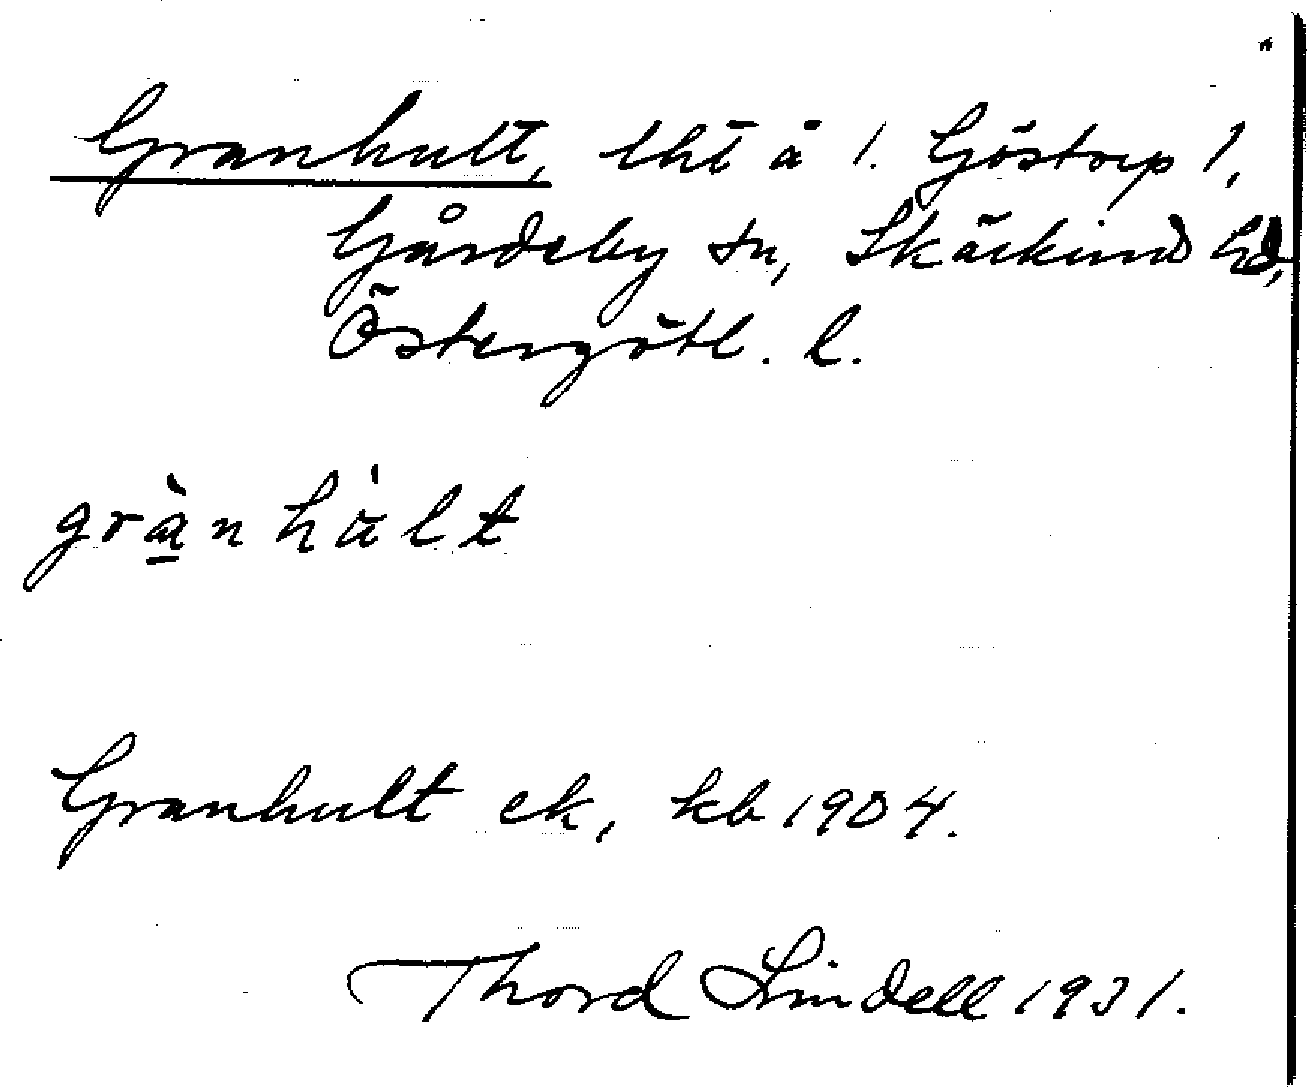 Granhult, lht å 1. Göstorp 1,
Gårdeby sn, Skärkind hd,
Östergötl. l.
grànhàlt
Granhult ek, kb 1904.
Thord Lindell 1931.